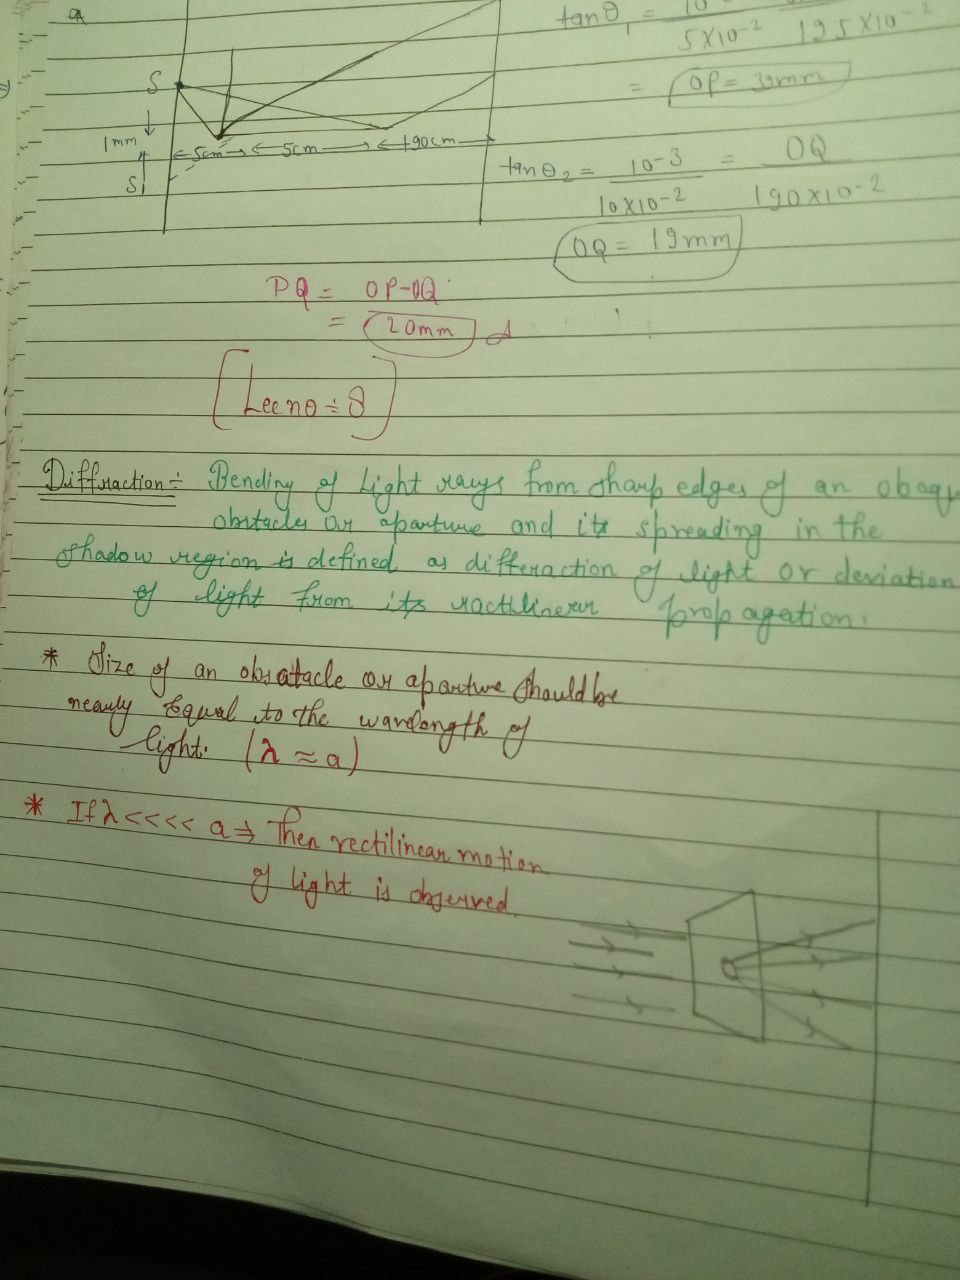 tanθ1 = 10
5×10-2 195×10-2
= OP = 39mm
S
1mm
5cm 5cm 190cm
S1
tanθ2 = 10-3 = OQ
10×10-2 190×10-2
OQ = 19mm
PQ = OP-OQ
= 20mm
[Lec no ÷ 8]
Diffraction ÷ Bending of Light rays from sharp edges of an obaqu
obstacles or aparture and its spreading in the
shadow region is defined as differaction of light or deviation
of light from its ractilinear propagation.
* Size of an obsatacle or aparture should be
nearly Equal to the wavelongth of
light. (λ ≈ a)
* If λ <<<< a ⇒ Then rectilinear motion
of light is observed.